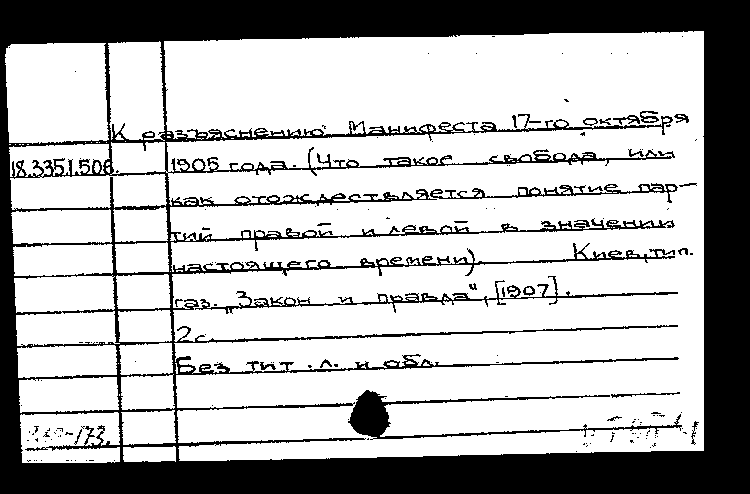 К разъяснению Манифеста 17-го октября
18.335.1.506. 1905 года. (Что такое свобода, или
как отождествляется понятие пар-
тий правой и левой в значении
настоящего времени). Киев, тип.
газ. „Закон и правда", [1907].
2с.
Без тит. л. и обл.
-173.